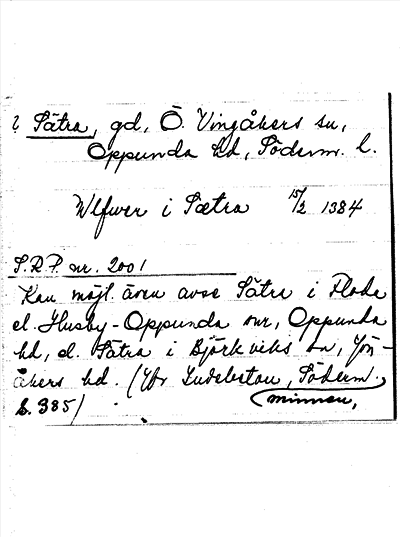 ? Sätra, gd, Ö. Vingåkers sn,
Oppunda hd, Söderm. l.
Wlfwer i Sætra 15/2 1384
S.R.P. nr. 2001
Kan möjl. även avse Sätra i Floda
el. Husby-Oppunda snr, Oppunda
hd, el. Sätra i Björkviks sn, Jön-
åkers hd. (Ybr Ludebertau, Söderm.
minnen,
s. 385)